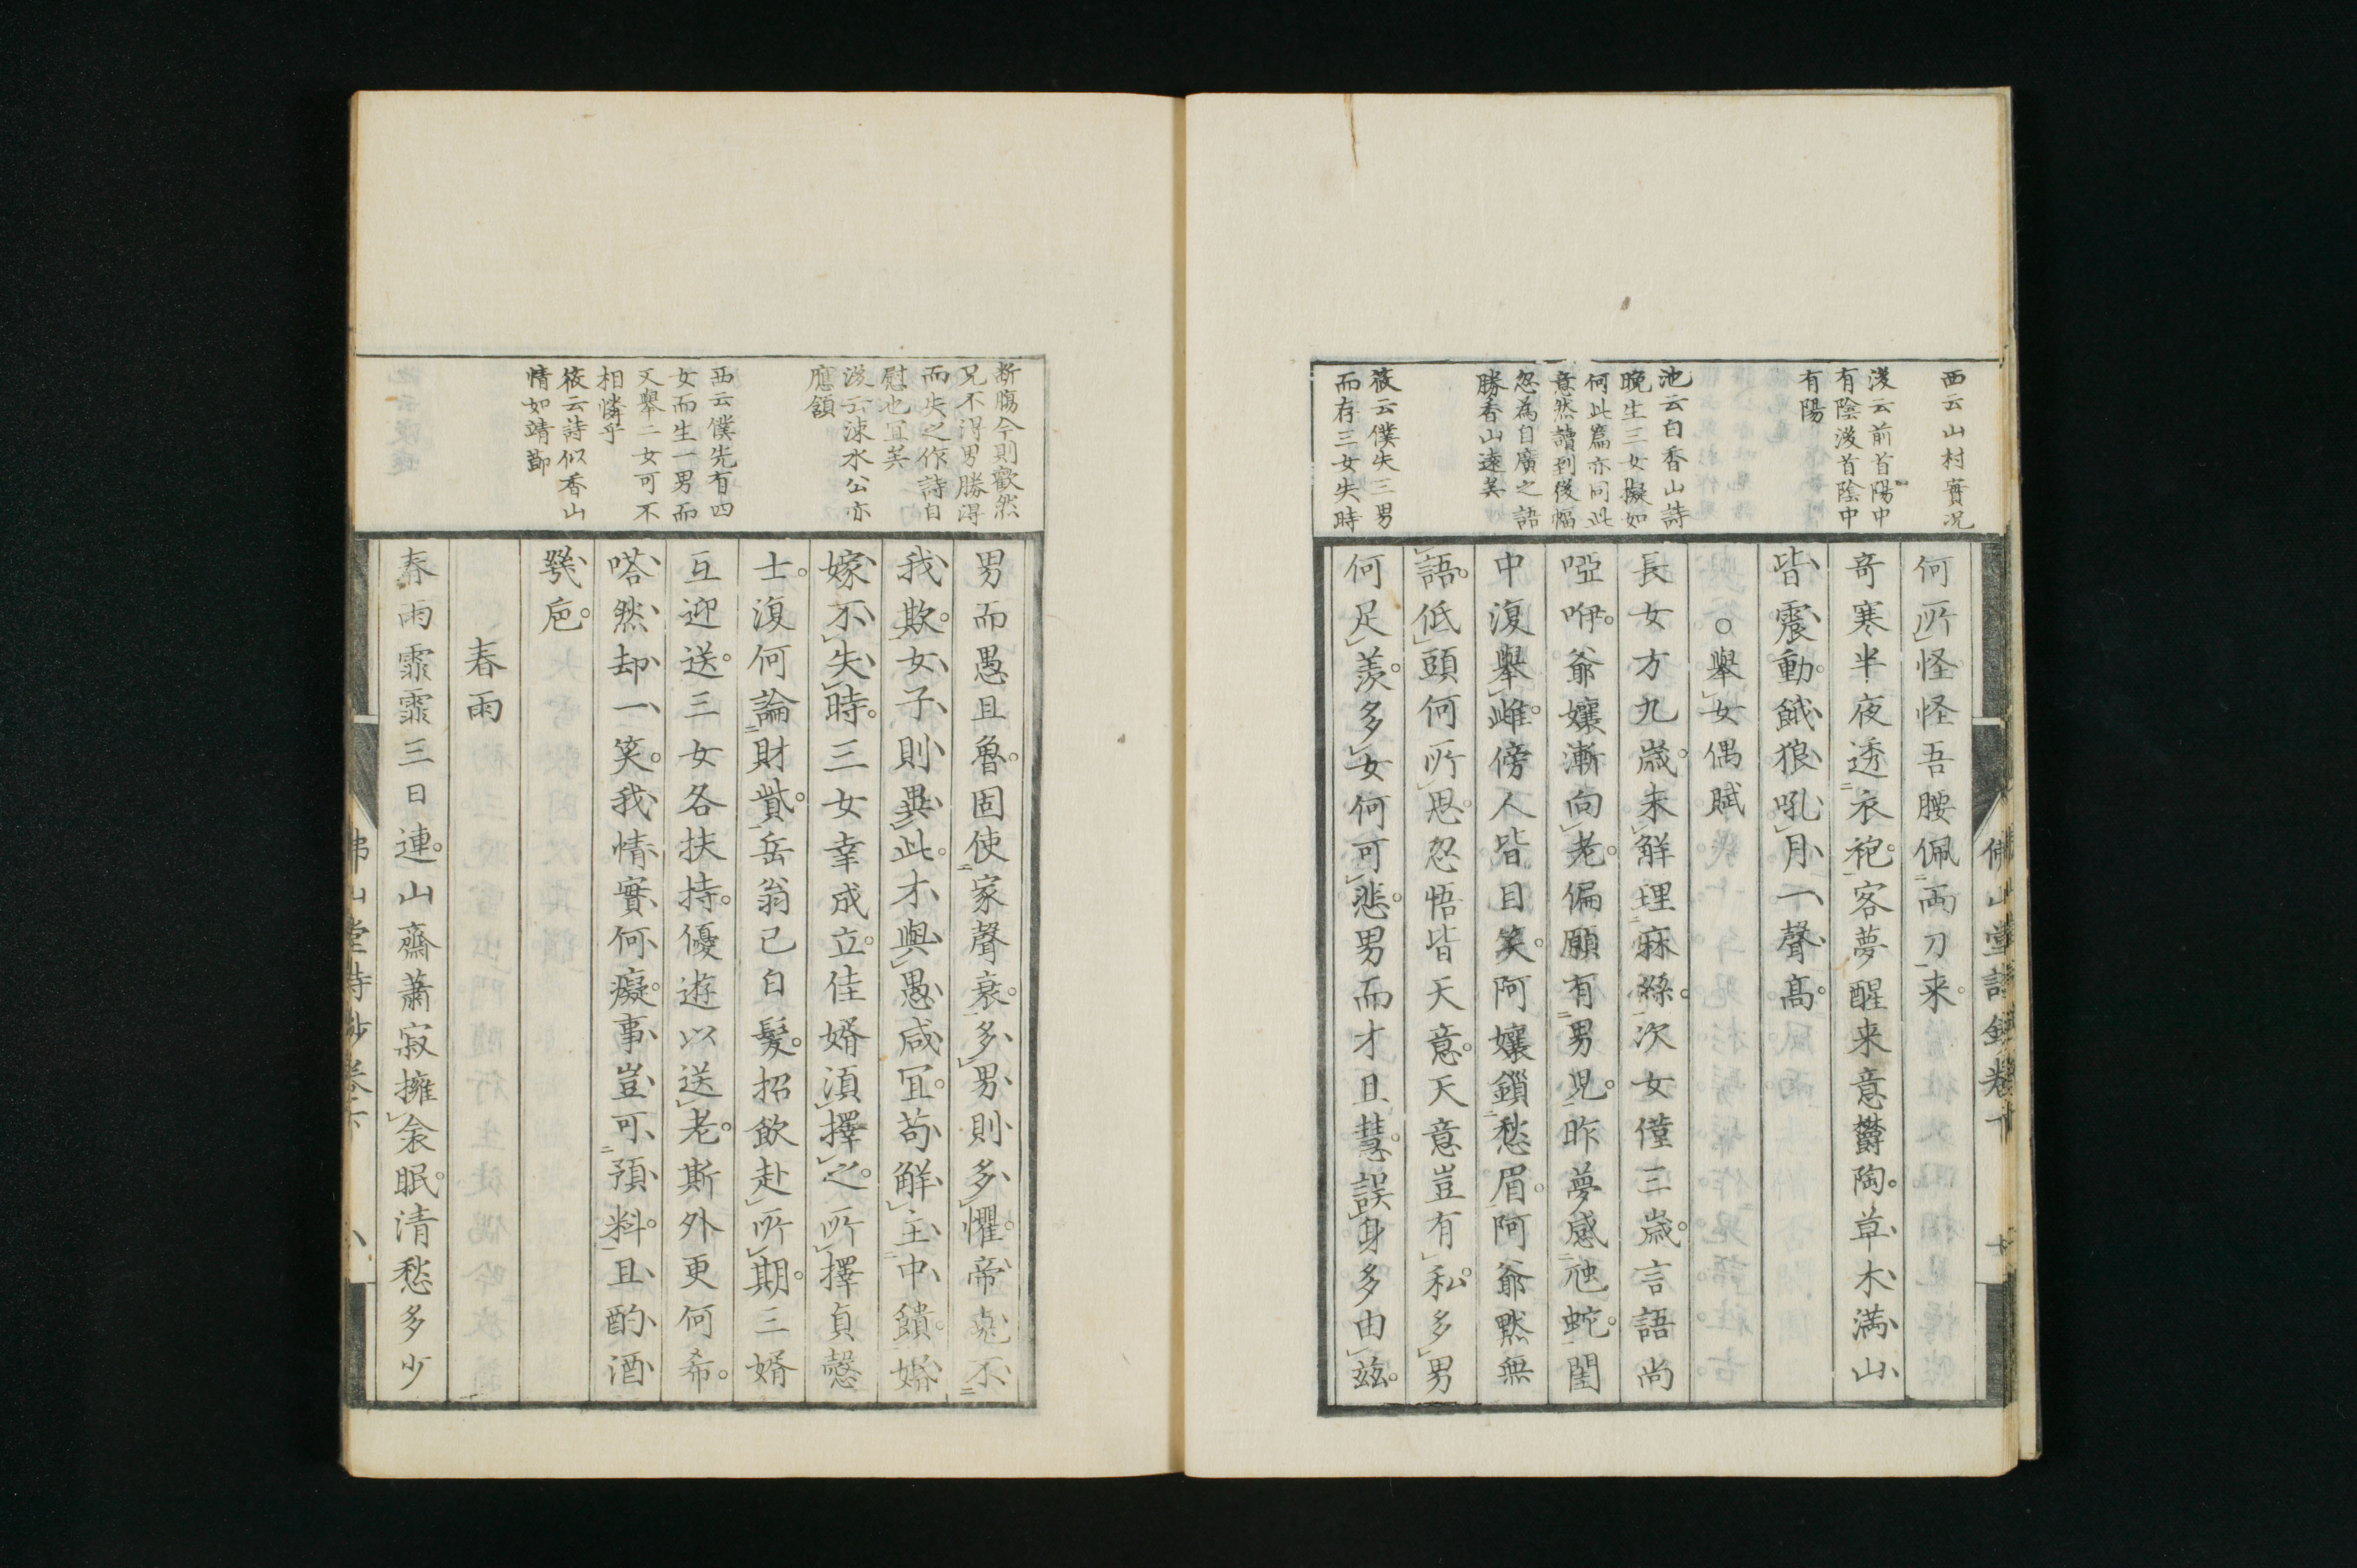 西云山村實况
後云前首陽中
有陰後首陰中
有陽
池云白香山詩
晩生三女擬如
何此篇亦同此
意然讀到後幅
忽為自廣之語
勝香山遠矣
筱云僕失三男
而存三女失時
何所怪怪吾腰佩両刀来
奇寒半夜透衣袍客夢醒来意欝陶草木満山
皆震動餓狼吼月一聲髙
○舉女偶賦
長女方九歳未解理麻絲次女僅三歳言語尚
啞咿爺孃漸向老偏願有男児昨夢感虺蛇閨
中復舉雌傍人皆目笑阿孃鎖愁眉阿爺黙無
語低頭何所思忽悟皆天意天意豈有私多男
何足羨多女何可悲男而才且慧誤身多由兹
佛山堂詩鈔卷
斷膓今則歡然
兄不得男勝得
而失之作詩自
慰也宜矣
後云涑水公亦
應頷
西云僕先有四
女而生一男而
又舉二女可不
相憐乎
筱云詩似香山
情如靖節
男而愚且魯固使家聲衰多男則多懼帝堯不
我欺女子則異此才與愚咸宜苟解主中饋婚
嫁不失時三女幸成立佳婿湏擇之所擇貞慤
士復何論財貲岳翁已白髮招飲赴所期三婿
互迎送三女各扶持優遊以送老斯外更何希
嗒然却一笑我情實何癡事豈可預料且酌酒
甖巵
春雨
春雨霏霏三日連山齋蕭寂擁衾眠清愁多少
佛山堂詩鈔卷